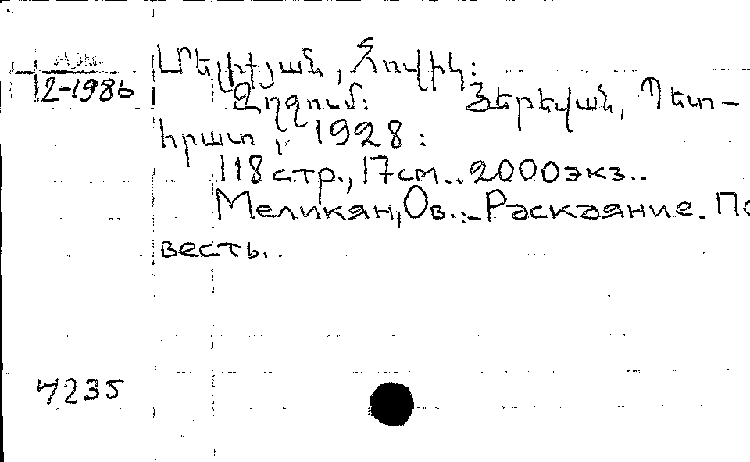 2-1986
Մելիքյան, Հովիկ:
Զղջում: Յերեվան, Պետ-
հրատ, 1928:
118 стр., 17 см.. 2000 экз..
Меликян, Ов.:- Раскаяние. По
весть.
4235